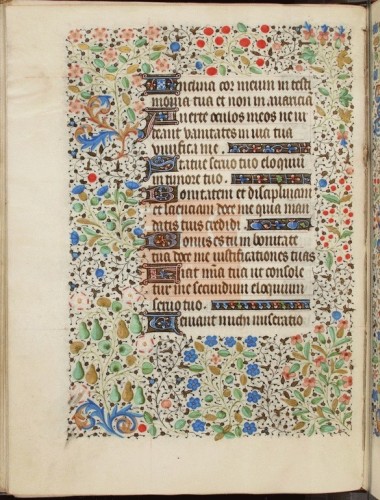 Inclina cor meum in testi
monia tua et non in avaricia
Averte oculos meos ne vi
deant vanitates in via tua
vivifica me.
Statue servo tuo eloquiū
in timore tuo.
Bonitatem et disciplinam
et scienciam doce me quia man
datis tuis credidi.
Bonus es tu in bonitate
tua doce me iustificationes tuas
Fiat mīa tua ut console
tur me secundum eloquium
servo tuo.
Veniant michi miseratio